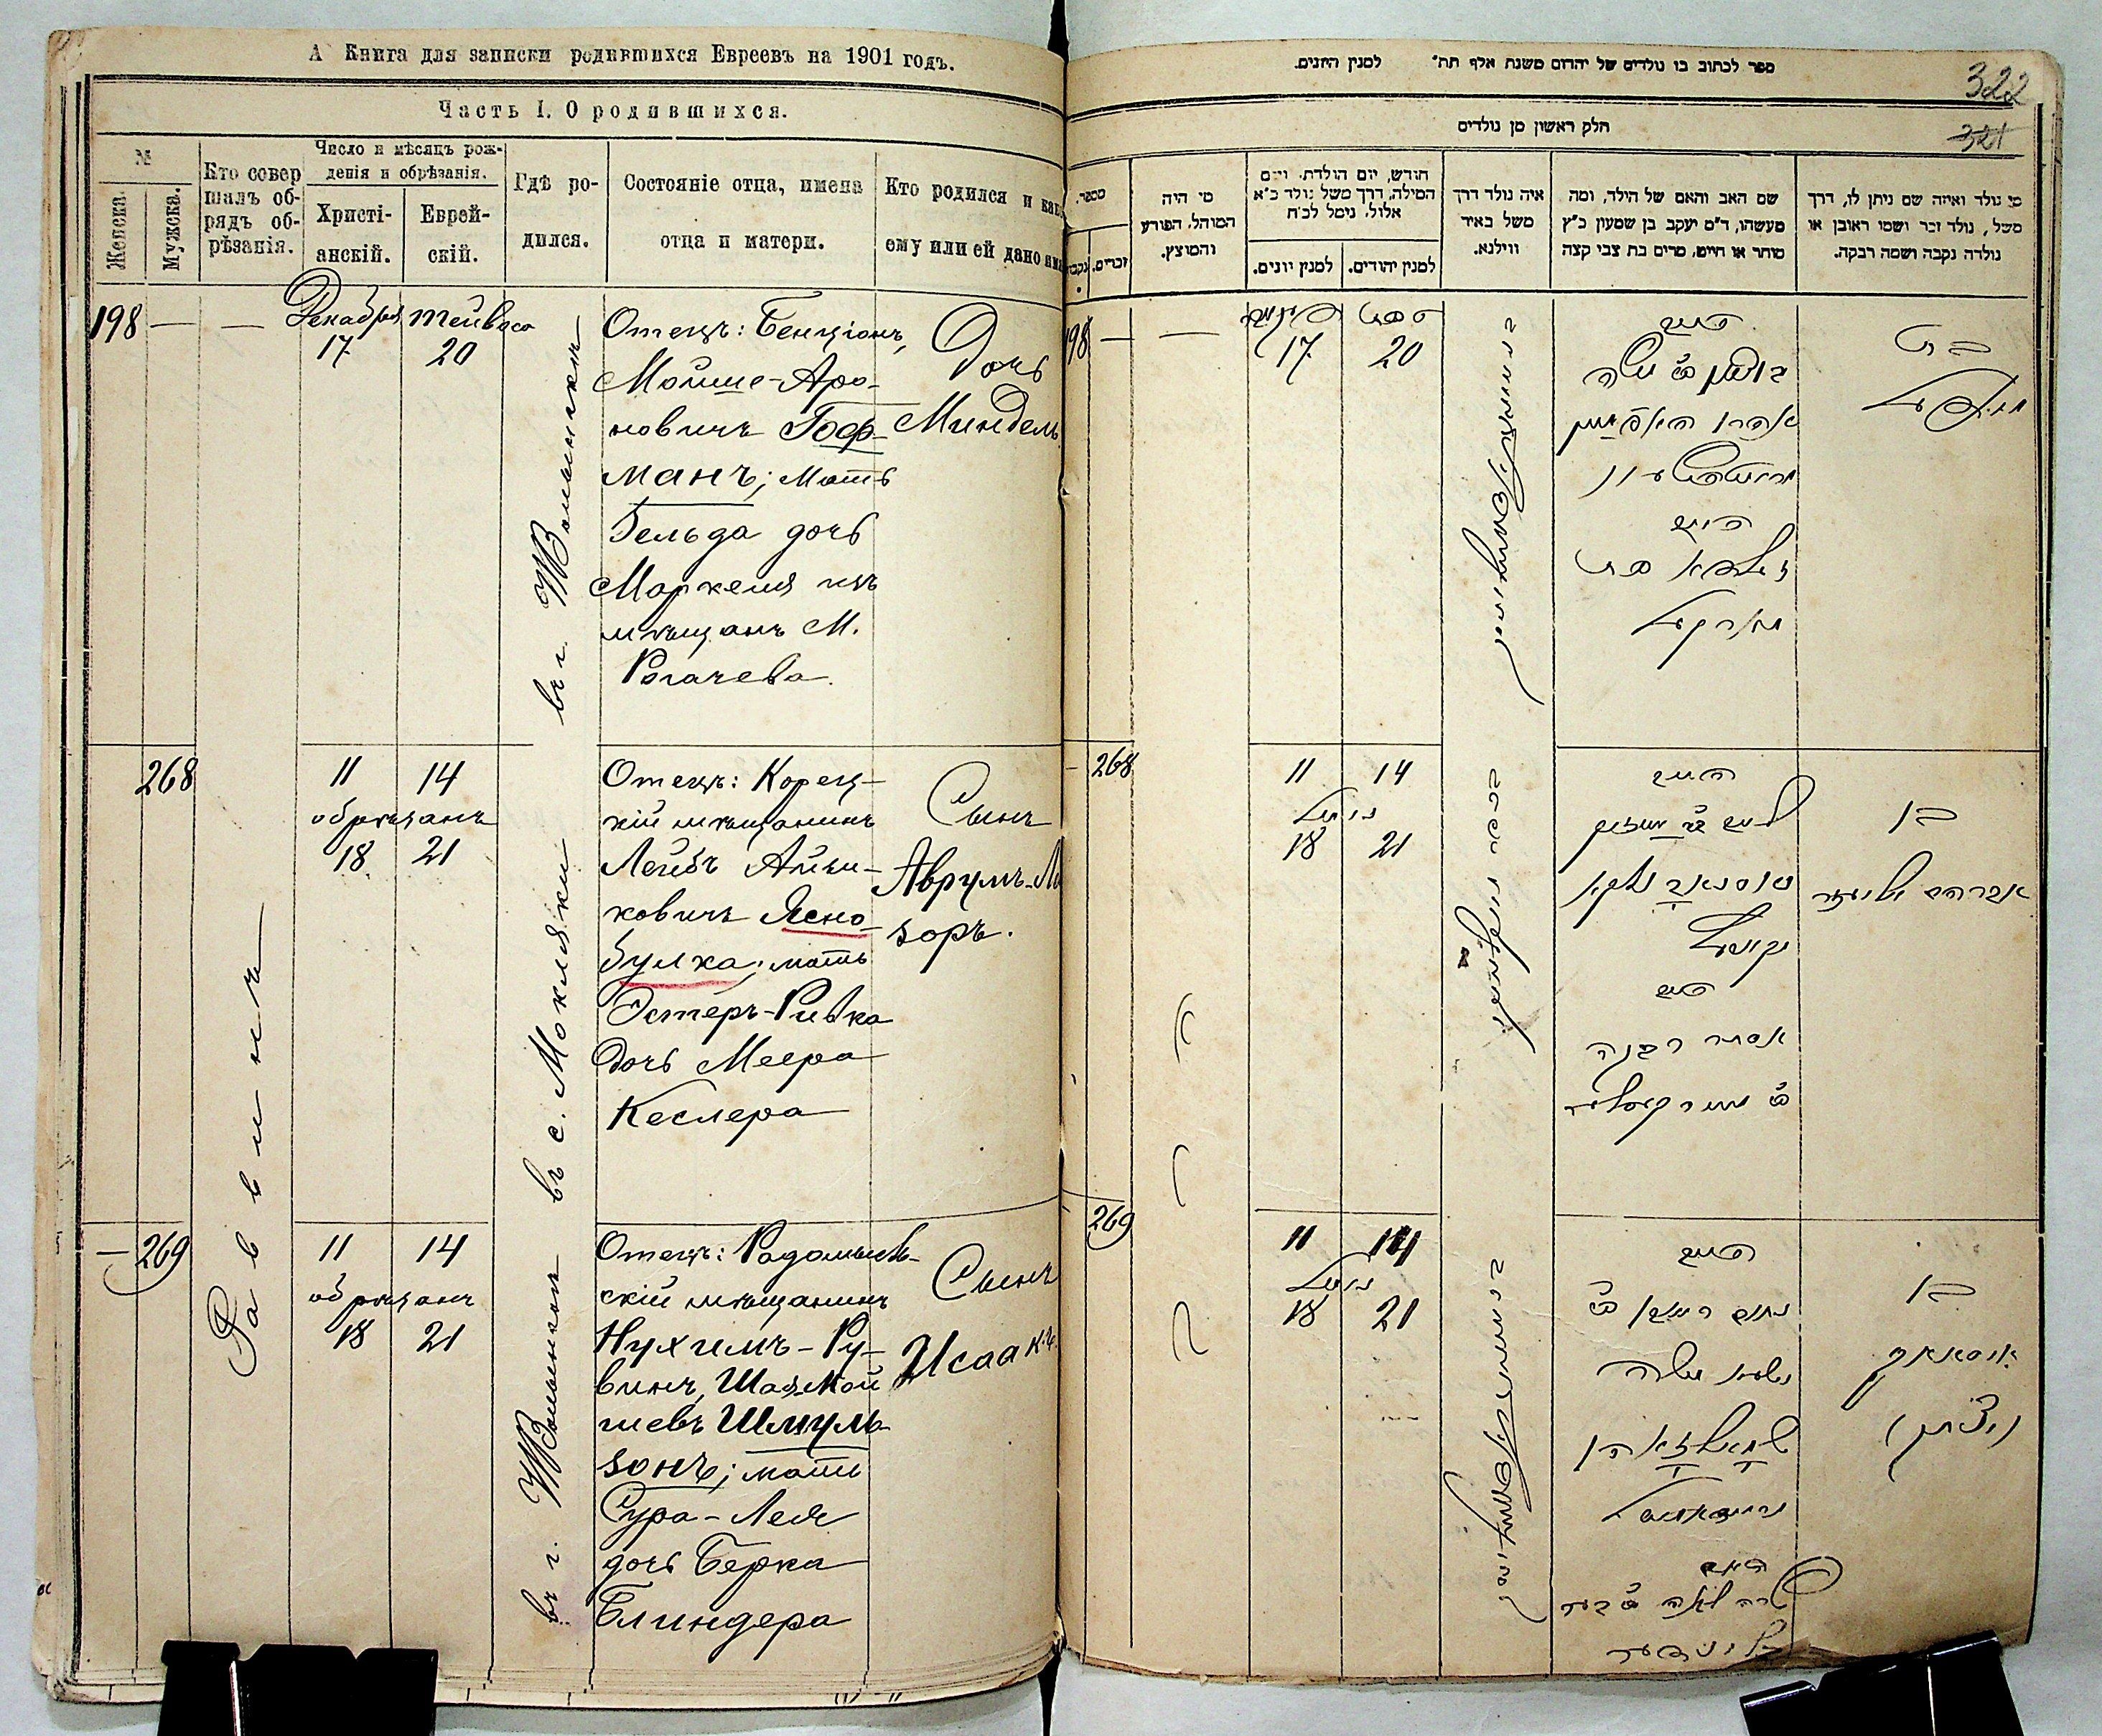 А Книга для записки родившихся Евреевъ на 1901 годъ.
Часть I. О родившихся.
№
Женска.
Мужска.
Кто совер
шалъ об-
рядъ об-
рѣзанія.
Число и мѣсяцъ рож-
денія и обрѣзанія.
Христі-
анскій.
Еврей-
скій.
Гдѣ ро-
дился.
Состояніе отца, имена
отца и матери.
Кто родился и како
ему или ей дано имя
198 — —
Декабря
17
Тейвеса
20
въ г. Ж Волынскъ
Отецъ: Бенціонъ,
Мойше-Аро-
новичъ Гоф-
манъ; мать
Гельда дочь
Маркеля изъ
мѣщанъ М.
Рогачева.
Дочь
Миндель
268
Равинъ
11 14
обрѣзанъ
18 21
въ с. Мокляки
Отецъ: Корец-
кій мѣщанинъ
Лейбъ Айзи-
ковичъ Ясно-
булка; мать
Эстеръ-Ривка
дочь Меера
Кеслера
Сынъ
Аврумъ-Ло
зоръ.
— 269
11 14
обрѣзанъ
18 21
Отецъ: Радомысль-
скій мѣщанинъ
Нухимъ-Ру-
винъ, Шая-Мой
шевъ Шмуль-
зонъ; мать
Сура-Лея
дочь Берка
Блиндера
Сынъ
Исаакъ.
322
321
ספר לכתוב בו נולדים של יהדום משנת אלף תת״ למנין היונים.
חלק ראשון מן נולדים
מספר.
נקבות
זכרים.
מי היה
המוהל, הפורע
והמוצץ.
חודש, יום הולדת ויום
המילה, דרך משל נולד כ״א
אלול, נימל לכ״ח
למנין יונים.
למנין יהודים.
איה נולד דרך
משל באיד
ווילנא.
שם האב והאם של הילד, ומה
מעשהו, ד״מ יעקב בן שמעון כ״ץ
סוחר או חייט, מרים בת צבי קצה
מי נולד ואיזה שם ניתן לו, דרך
משל, נולד זכר ושמו ראובן או
נולדה נקבה ושמה רבקה.
198 — —
17 20
האב
משה
אהרן האפמאן
האם
בת
מארקיל
בת
מינדל
268
11 14
נימול
18 21
האב
האם
אסתר רבקה
בן
אברהם אליעזר
269
11 14
נימול
18 21
האב
נחום ראובן
משה
האם
שרה לאה
בלינדער
בן
איסאאק
(יצחק)